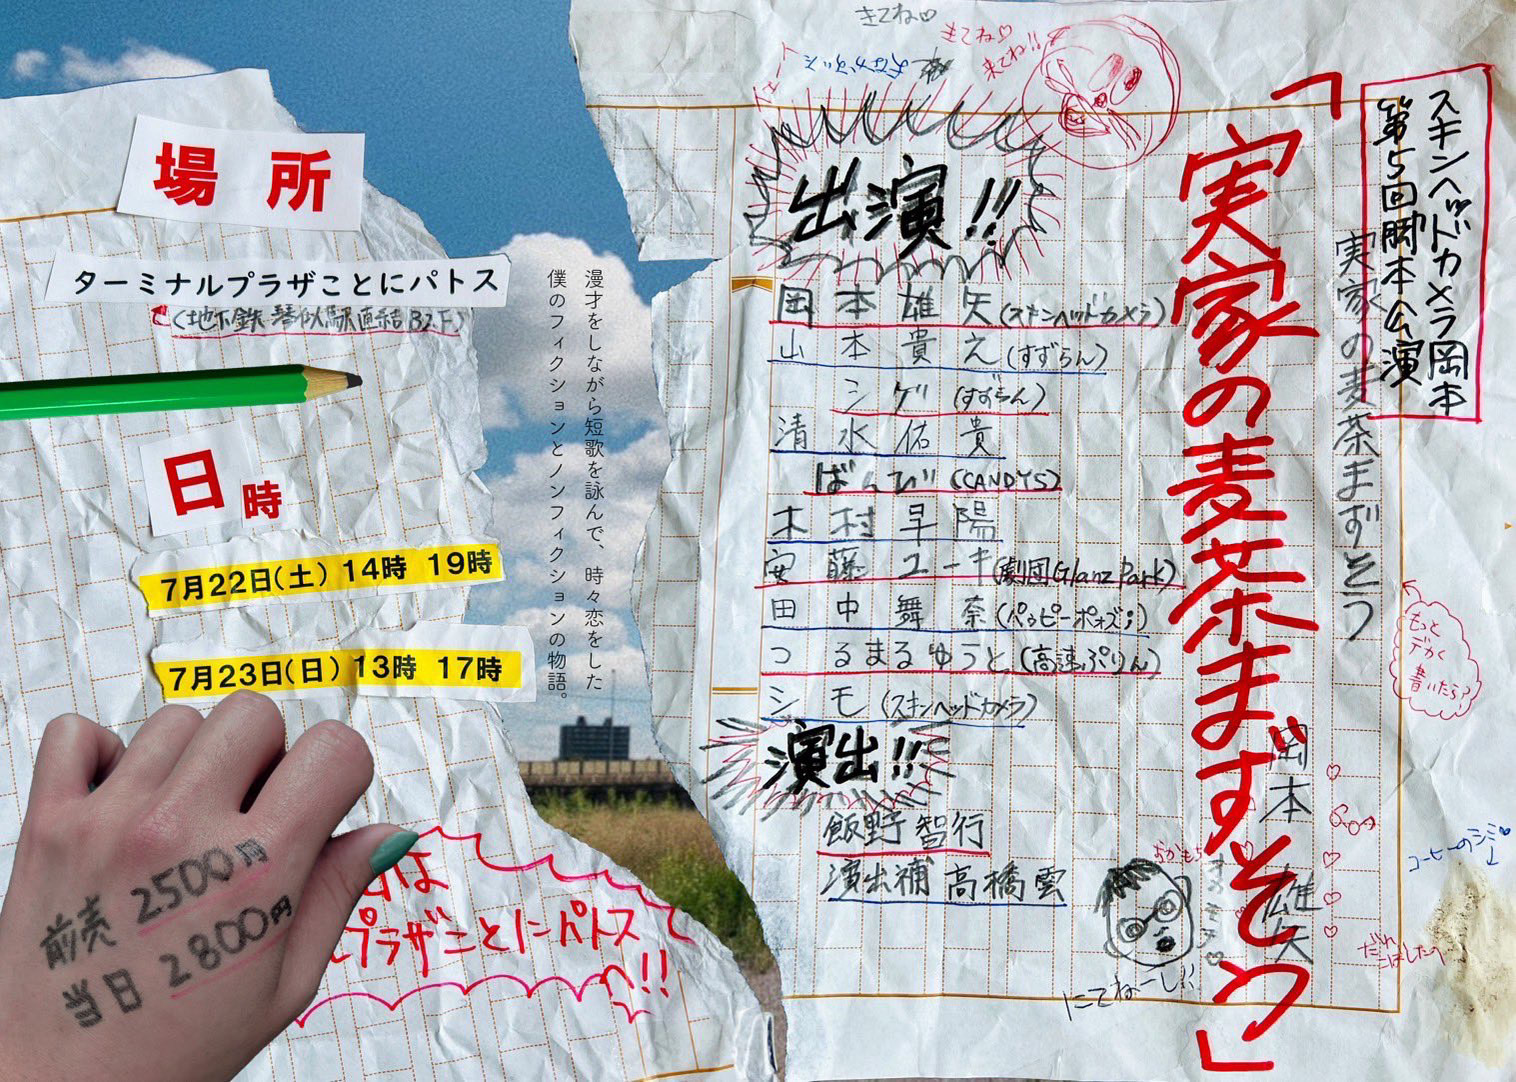 きてね♡
きてね♡
来てね!!
スキンヘッドカメラ岡本
第5回岡本公演
実家の麦茶まずそう
「実家の麦茶まずそう」
岡本 雄矢
もっと
デカく
書いたら?
コーヒーのシミ
だれ
こぼしたの
にてねーし!!
出演!!
岡本雄矢(スキンヘッドカメラ)
山本貴え(すずらん)
シゲ(すずらん)
清水佑貴
ばんび(CANDYS)
木村早陽
安藤ユーキ(劇団Glanz Park)
田中舞奈(パゥピーポォズ;)
つるまるゆうと(高速ぷりん)
シモ(スキンヘッドカメラ)
演出!!
飯野智行
演出補 高橋雲
漫才をしながら短歌を詠んで、時々恋をした
僕のフィクションとノンフィクションの物語。
場所
ターミナルプラザことにパトス
(地下鉄琴似駅直結B2F)
日時
7月22日(土) 14時 19時
7月23日(日) 13時 17時
前売 2500円
当日 2800円
は
プラザことにパトス
へ!!